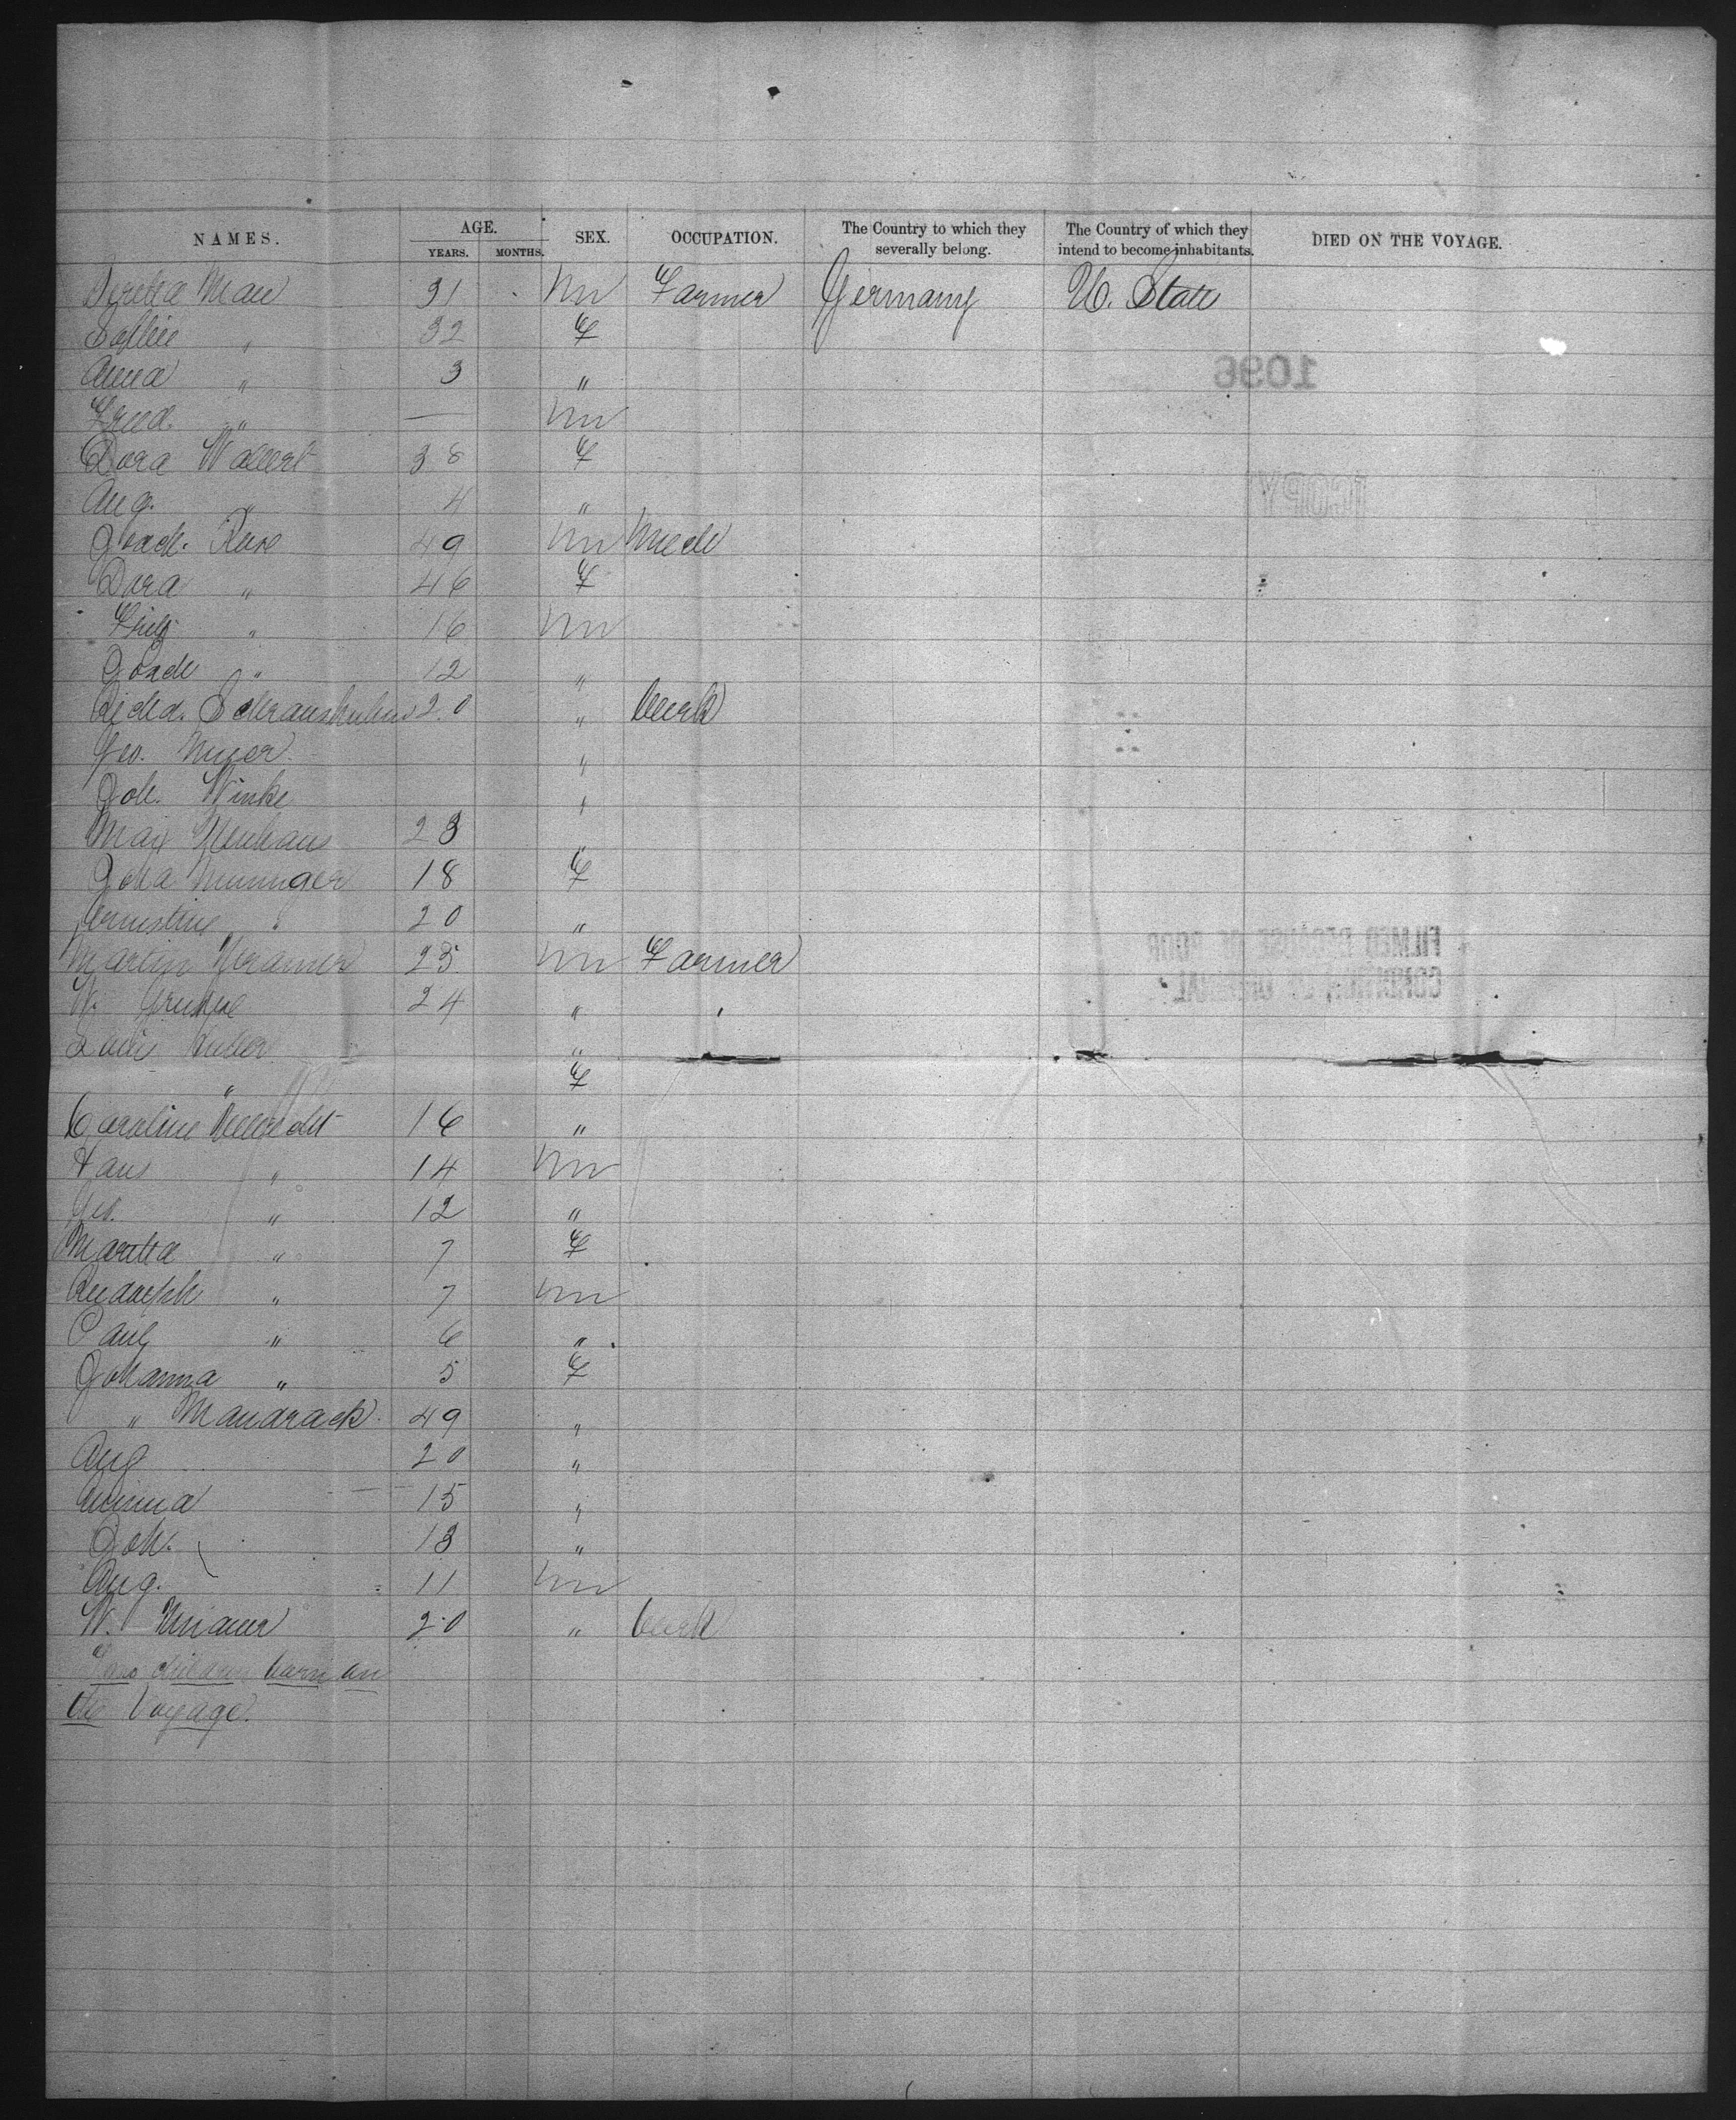 NAMES. AGE. YEARS. MONTHS. SEX. OCCUPATION. The Country to which they severally belong. The Country of which they intend to become inhabitants. DIED ON THE VOYAGE.
Mau 31 m Farmer Germany U. State
Sophie " 32 F
Anna " 3 "
Fried. " — m
Dora Wallert 38 F
Aug. " 4 "
Joach. Ruse 49 m Mech
Dora " 46 F
Fritz " 16 m
Joach " 12 "
Richd. 20 " Clerk
Geo. Meyer "
Joh. Winke "
Max Neuhaus 23 "
Joha 18 F
Ernestine " 20 "
Martin Kramer 25 m Farmer
W. 24 " "
Huber "
" F
Caroline 16 "
Hans " 14 m
Geo. " 12 "
Martha " 7 F
Rudolph " 7 m
Paul " 6 "
Johanna " 5 F
" Mandrack 49 "
Aug 20 "
Minna 15 "
Joh. 13 "
Aug. 11 m
W. 20 " Clerk
Two children born on
the Voyage.
1096
COPY
FILMED BECAUSE OF POOR
CONDITION OF ORIGINAL